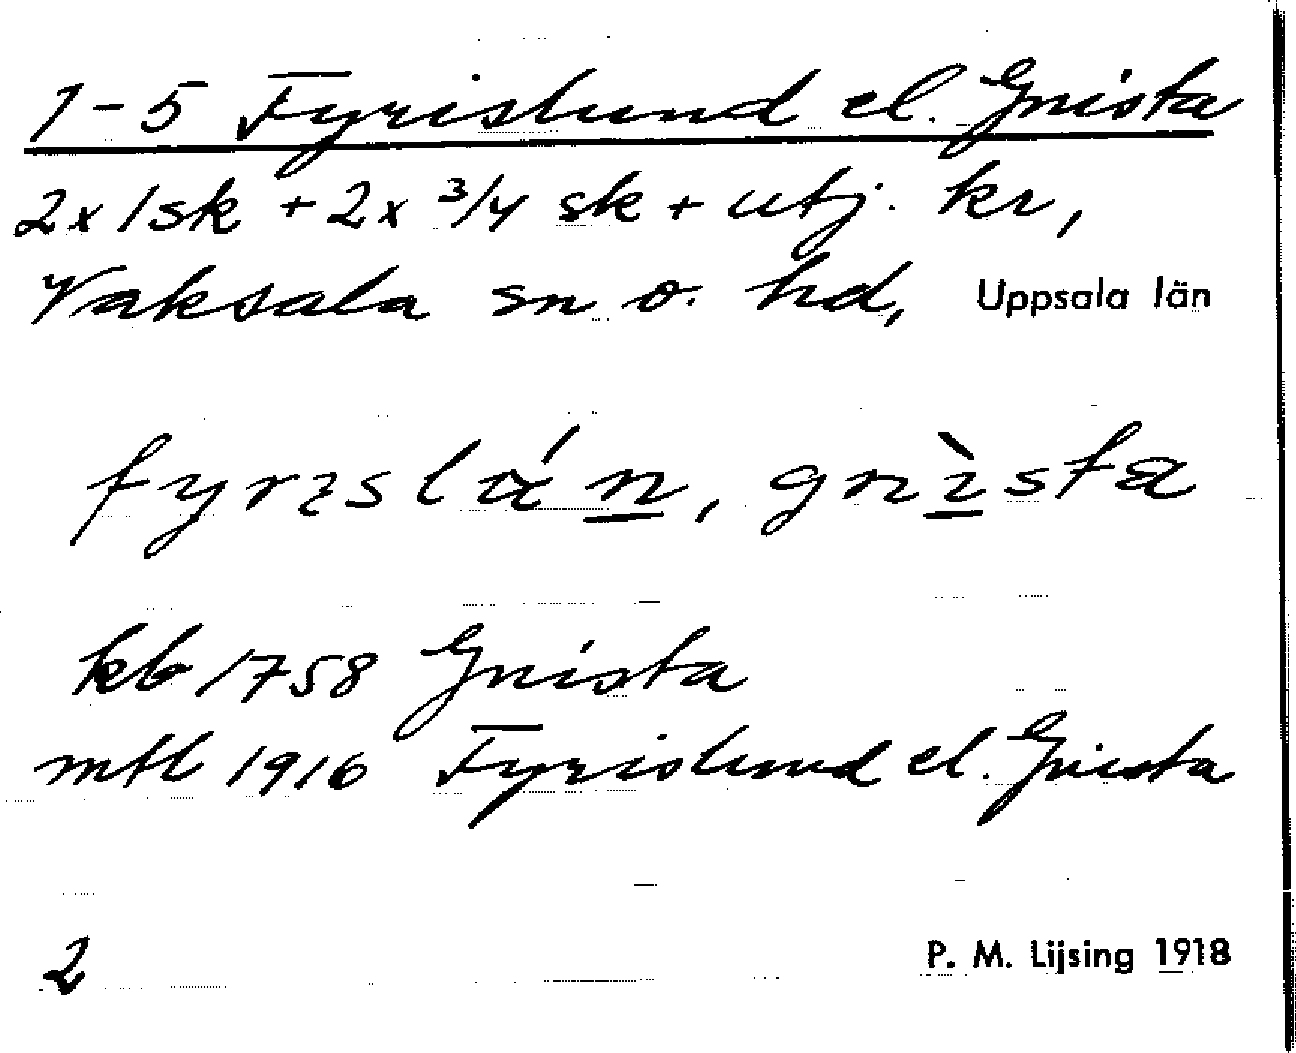 1-5 Fyrislund el. Gnista
2x1sk + 2x 3/4 sk + utj. kr,
Vaksala sn o. hd, Uppsala län
fyrɪslɑ́n, gnɪ̀sta
kb 1758 Gnista
mtl 1916 Fyrislund el. Gnista
2
P. M. Lijsing 1918